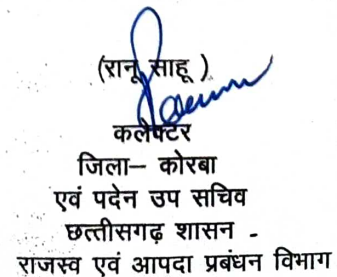 (रानू साहू )
कलेक्टर
जिला– कोरबा
एवं पदेन उप सचिव
छत्तीसगढ़ शासन -
राजस्व एवं आपदा प्रबंधन विभाग